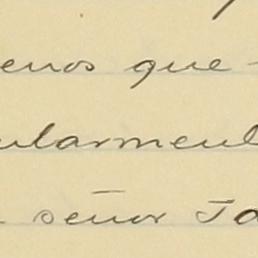 enos que
ularment
señor Ja